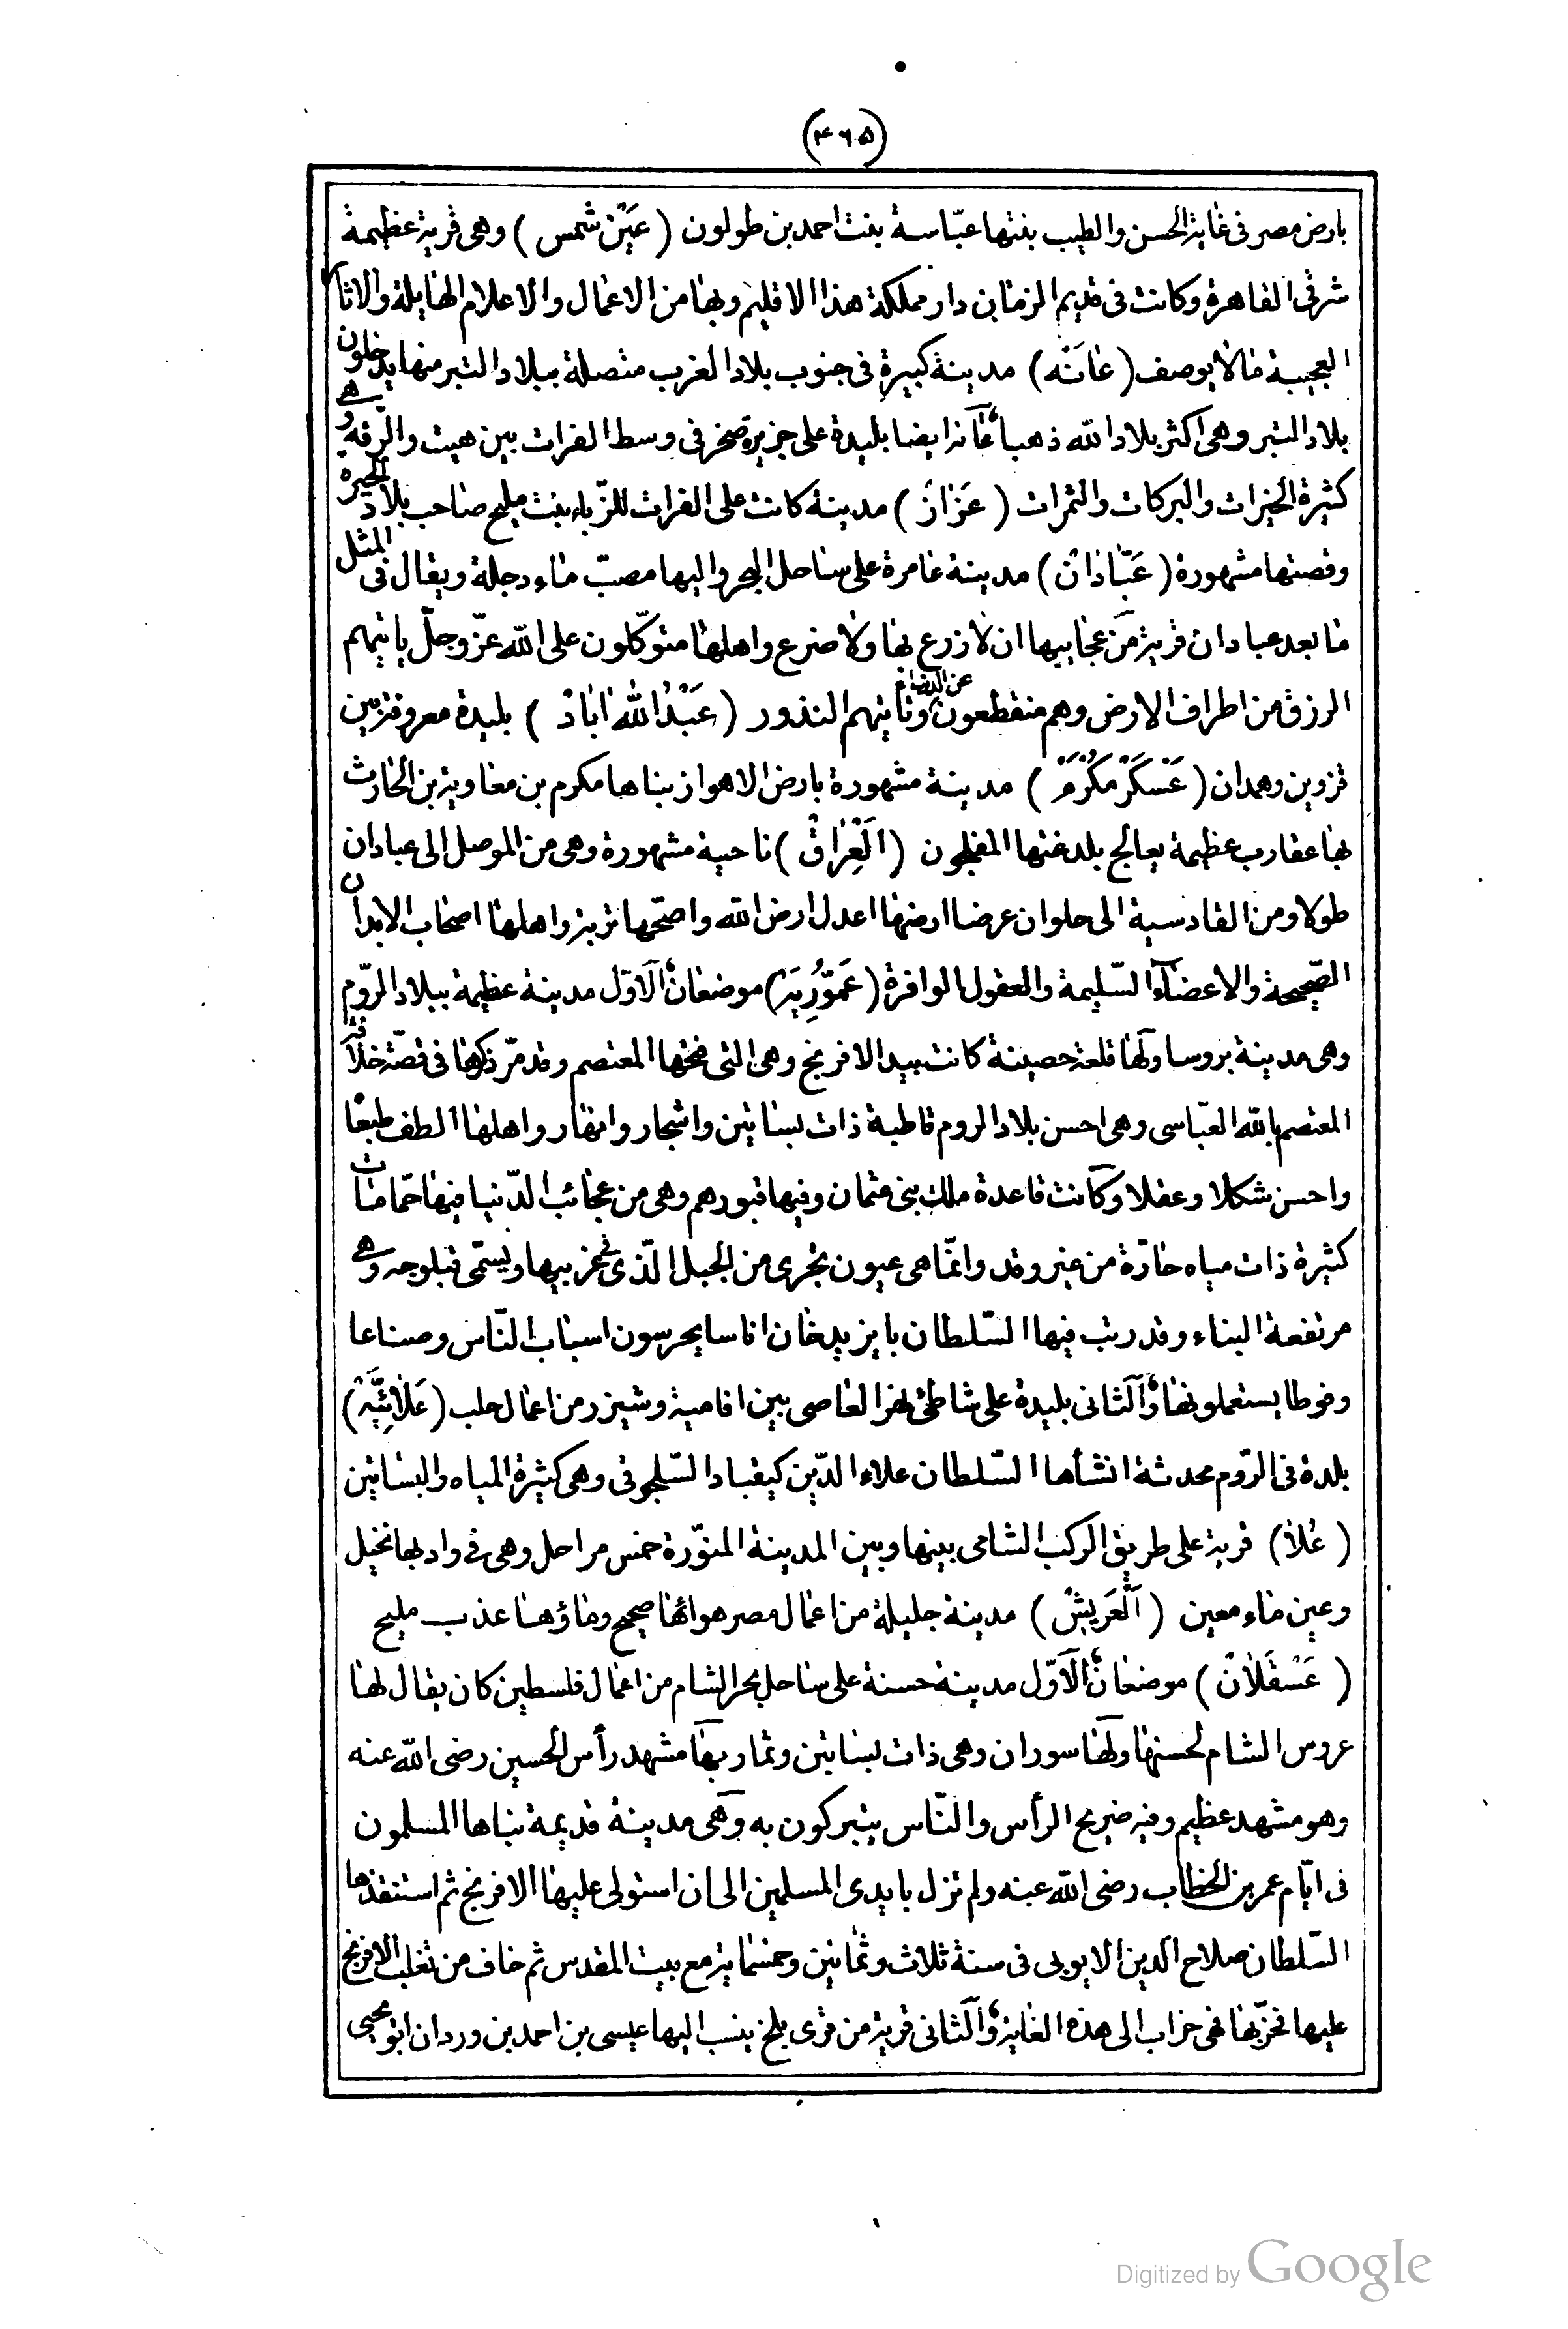 (۴۶۵)
بارض مصر فى غاية الحسن والطيب بنتها عبّاسة بنت احمد بن طولون (عَيْن شمس) وهى قرية عظيمة
شرقى القاهرة وكانت فى قديم الزمان دار مملكة هذا الاقليم وبها من الاعمال والاعلام الهايلة والاثار
العجيبة ما لا يوصف (غانَه) مدينة كبيرة فى جنوب بلاد الغرب متصلة ببلاد التبر منها يدخلون
بلاد التبر وهى اكثر بلاد الله ذهبا عانة ايضا بليدة على جزيرة صخر فى وسط الفرات بين هيت والرّقة وهى
كثيرة الخيرات والبركات والثمرات (عَزَازْ) مدينة كانت على الفرات للزّباء بنت مليح صاحب بلاد الحيرة
وقصتها مشهورة (عَبّادَانْ) مدينة عامرة على ساحل البحر واليها مصبّ ماء دجلة ويقال فى المثل
ما بعد عبادان قرية من عجايبها ان لا زرع بها ولا ضرع واهلها متوكّلون على الله عزّ وجلّ ياتيهم
الرزق من اطراف الارض وهم منقطعون وتاتيهم النذور (عَبْدُ الله اٰبَادْ) بليدة معروفة بين
قزوين وهمدان (عَسْكَرْ مُكْرَمْ) مدينة مشهورة بارض الاهواز بناها مكرم بن معاوية بن الحارث
بها عقارب عظيمة يعالج بلدغتها المفلجون (اَلْعِرَاقْ) ناحية مشهورة وهى من الموصل الى عبادان
طولا ومن القادسية الى حلوان عرضا ارضها اعدل ارض الله واصحّها تربة واهلها اصحاب الابدان
الصّحيحة والاعضاء السّليمة والعقول الوافرة (عَمّوُرِيَة) موضعان اَلاَوّل مدينة عظيمة ببلاد الرّوم
وهى مدينة بروسا ولها قلعة حصينة كانت بيد الافرنج وهى التى فتحها المعتصم وقد مرّ ذكرها فى قصّة خلافة
المعتصم بالله العبّاسى وهى احسن بلاد الروم قاطبة ذات بساتين واشجار وانهار واهلها الطف طبعًا
واحسن شكلا وعقلا وكانت قاعدة ملك بنى عثمان وفيها قبورهم وهى من عجائب الدّنيا فيها حمّامات
كثيرة ذات مياه حارّة من غير وقد وانّما هى عيون تجرى من الجبل الّذى فى غربيها ويسمّى قبلوجه وهى
مرتفعة البناء وقد رتب فيها السّلطان بايزيد خان اناسا يحرسون اسباب النّاس وصناعا
وفوطا يستعملونها واَلثانى بليدة على شاطئ نهر العاصى بين افامية وشيزر من اعمال حلب (عَلاٰئِيَّة)
بلدة فى الرّوم محدثة انشأها السّلطان علاء الدّين كيقباد السّلجوقى وهى كثيرة المياه والبساتين
(عُلاٰ) قرية على طريق الركب الشامى بينها وبين المدينة المنوّرة خمس مراحل وهى فى واد بها نخيل
وعين ماء معين (اَلْعَرِيشْ) مدينة جليلة من اعمال مصر هوائها صحيح وماؤها عذب مليح
(عَسْقَلاٰنْ) موضعان اَلاَوّل مدينة حسنة على ساحل بحر الشام من اعمال فلسطين كان يقال لها
عروس الشام لحسنها ولها سوران وهى ذات بساتين وثمار بها مشهد رأس الحسين رضى الله عنه
وهو مشهد عظيم وفيه ضريح الرأس والنّاس يتبركون به وهى مدينة قديمة بناها المسلمون
فى ايّام عمر بن الخطاب رضى الله عنه ولم تزل بايدى المسلمين الى ان استولى عليها الافرنج ثم استنقذها
السّلطان صلاح الدين الايوبى فى سنة ثلاث وثمانين وخمسماية مع بيت المقدس ثم خاف من تغلب الافرنج
عليها فخرّبها فهى خراب الى هذه الغاية واَلثانى قرية من قرى بلخ ينسب اليها عيسى بن احمد بن وردان ابو يحيى
Digitized by Google